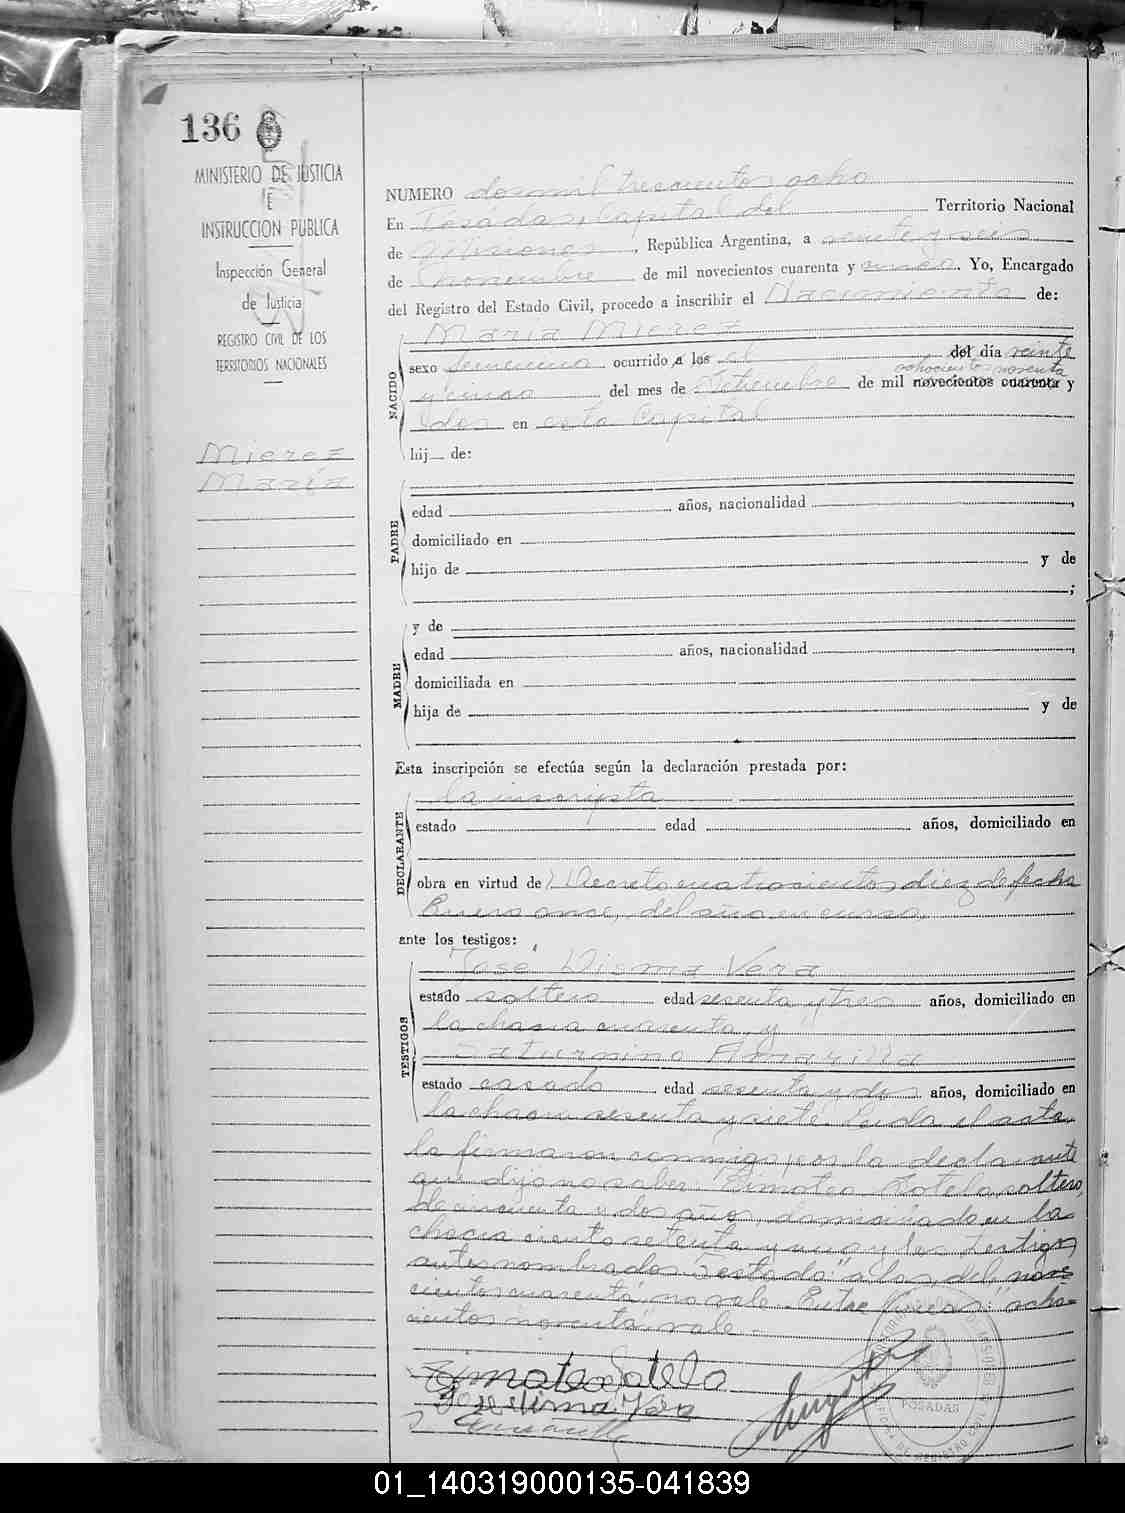 136
MINISTERIO DE JUSTICIA
E
INSTRUCCION PUBLICA
Inspección General
de Justicia
REGISTRO CIVIL DE LOS
TERRITORIOS NACIONALES
Mierez
María
NUMERO dos mil trescientos ocho
En Posadas, Capital del Territorio Nacional
de Misiones, República Argentina, a veinte y seis
de noviembre de mil novecientos cuarenta y cinco. Yo, Encargado
del Registro del Estado Civil, procedo a inscribir el Nacimiento de:
NACIDO
María Mierez
sexo femenino ocurrido a las el del día veinte
ochocientos noventa
y cinco del mes de Setiembre de mil novecientos cuarenta y
dos en esta Capital
hij de:
PADRE
edad años, nacionalidad ,
domiciliado en
hijo de y de
;
MADRE
y de
edad años, nacionalidad ,
domiciliada en
hija de y de
Esta inscripción se efectúa según la declaración prestada por:
DECLARANTE
la inscripta
estado edad años, domiciliado en
obra en virtud del Decreto cuatrocientos diez de fecha
Enero once, del año en curso
ante los testigos:
TESTIGOS
José Disma Vera
estado soltero edad sesenta y tres años, domiciliado en
la chacra cuarenta y
Saturnino Amarilla
estado casado edad sesenta y dos años, domiciliado en
la chacra sesenta y siete. Leída el acta
la firmaron conmigo, por la declarante
que dijo no saber: Timoteo Sotelo, soltero,
de cincuenta y dos años, domiciliado en la
chacra ciento setenta y una y los testigos
antes nombrados. Testado: "a las, del, nove
cientos cuarenta" no vale. Entre líneas: "ocho-
cientos noventa" vale.-
Timoteo Sotelo
José Disma Vera
S Amarilla
POSADAS
01_140319000135-041839